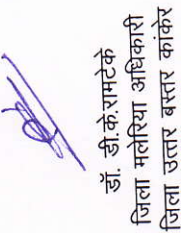 डॉ. डी.के.रामटेके
जिला मलेरिया अधिकारी
जिला उत्तर बस्तर कांकेर